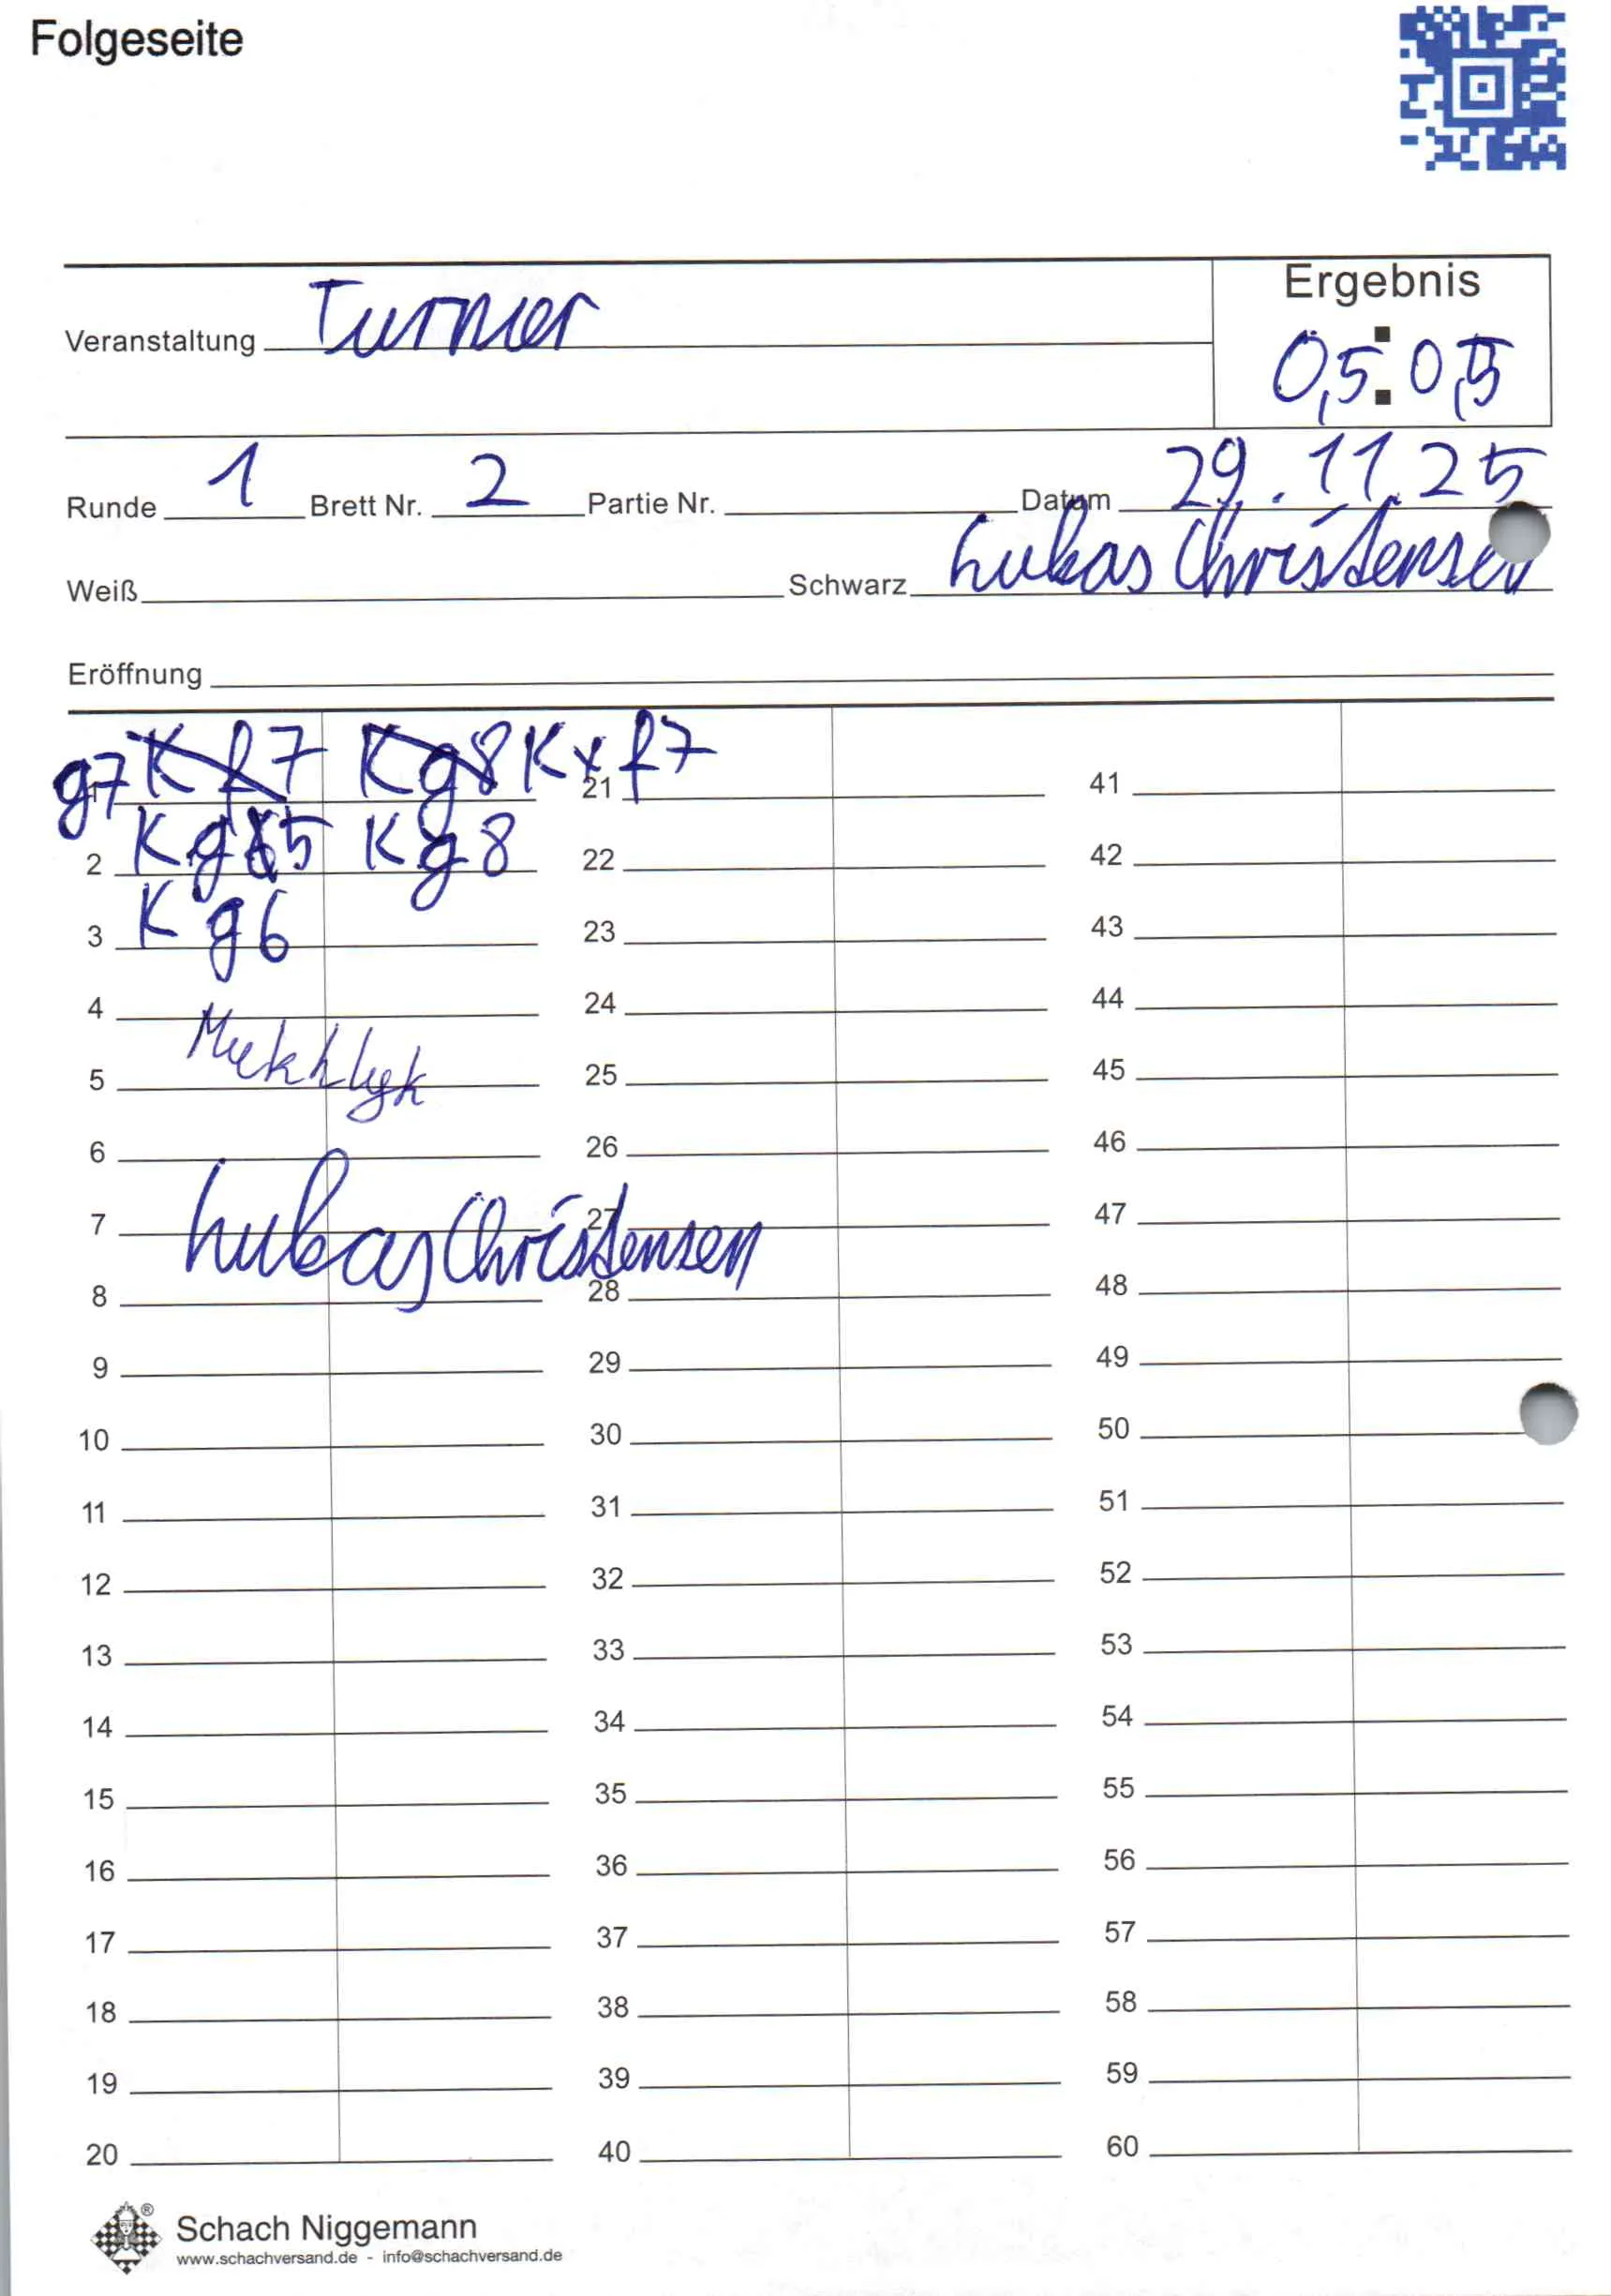 Folgeseite
Veranstaltung Turnier
Ergebnis
0,5:0,5
Runde 1 Brett Nr. 2 Partie Nr. Datum 29.11.25
Weiß Schwarz Lukas Christensen
Eröffnung
1 g7 Kf7 Kg8 Kxf7 21 41
2 Kg5 Kg8 22 42
3 Kg6 23 43
4 24 44
5 25 45
6 26 46
7 Lukas Christensen 27 47
8 28 48
9 29 49
10 30 50
11 31 51
12 32 52
13 33 53
14 34 54
15 35 55
16 36 56
17 37 57
18 38 58
19 39 59
20 40 60
Schach Niggemann
www.schachversand.de - info@schachversand.de